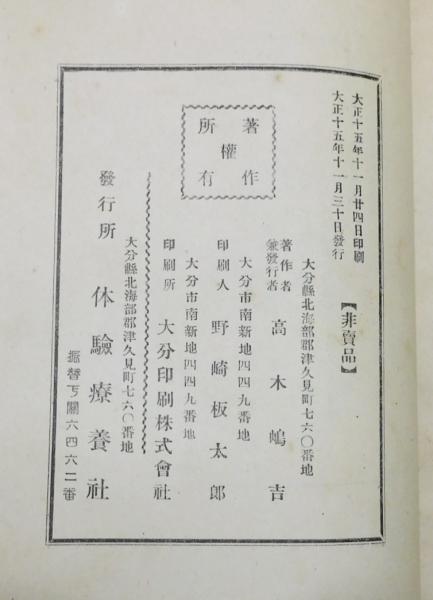 大正十五年十一月廿四日印刷
大正十五年十一月三十日發行
【非賣品】
著作權所有
大分縣北海部郡津久見町七六〇番地
著作者兼發行者 高木嶋吉
大分市南新地四四九番地
印刷人 野崎板太郎
大分市南新地四四九番地
印刷所 大分印刷株式會社
大分縣北海部郡津久見町七六〇番地
發行所 体驗療養社
振替下關六四六二番